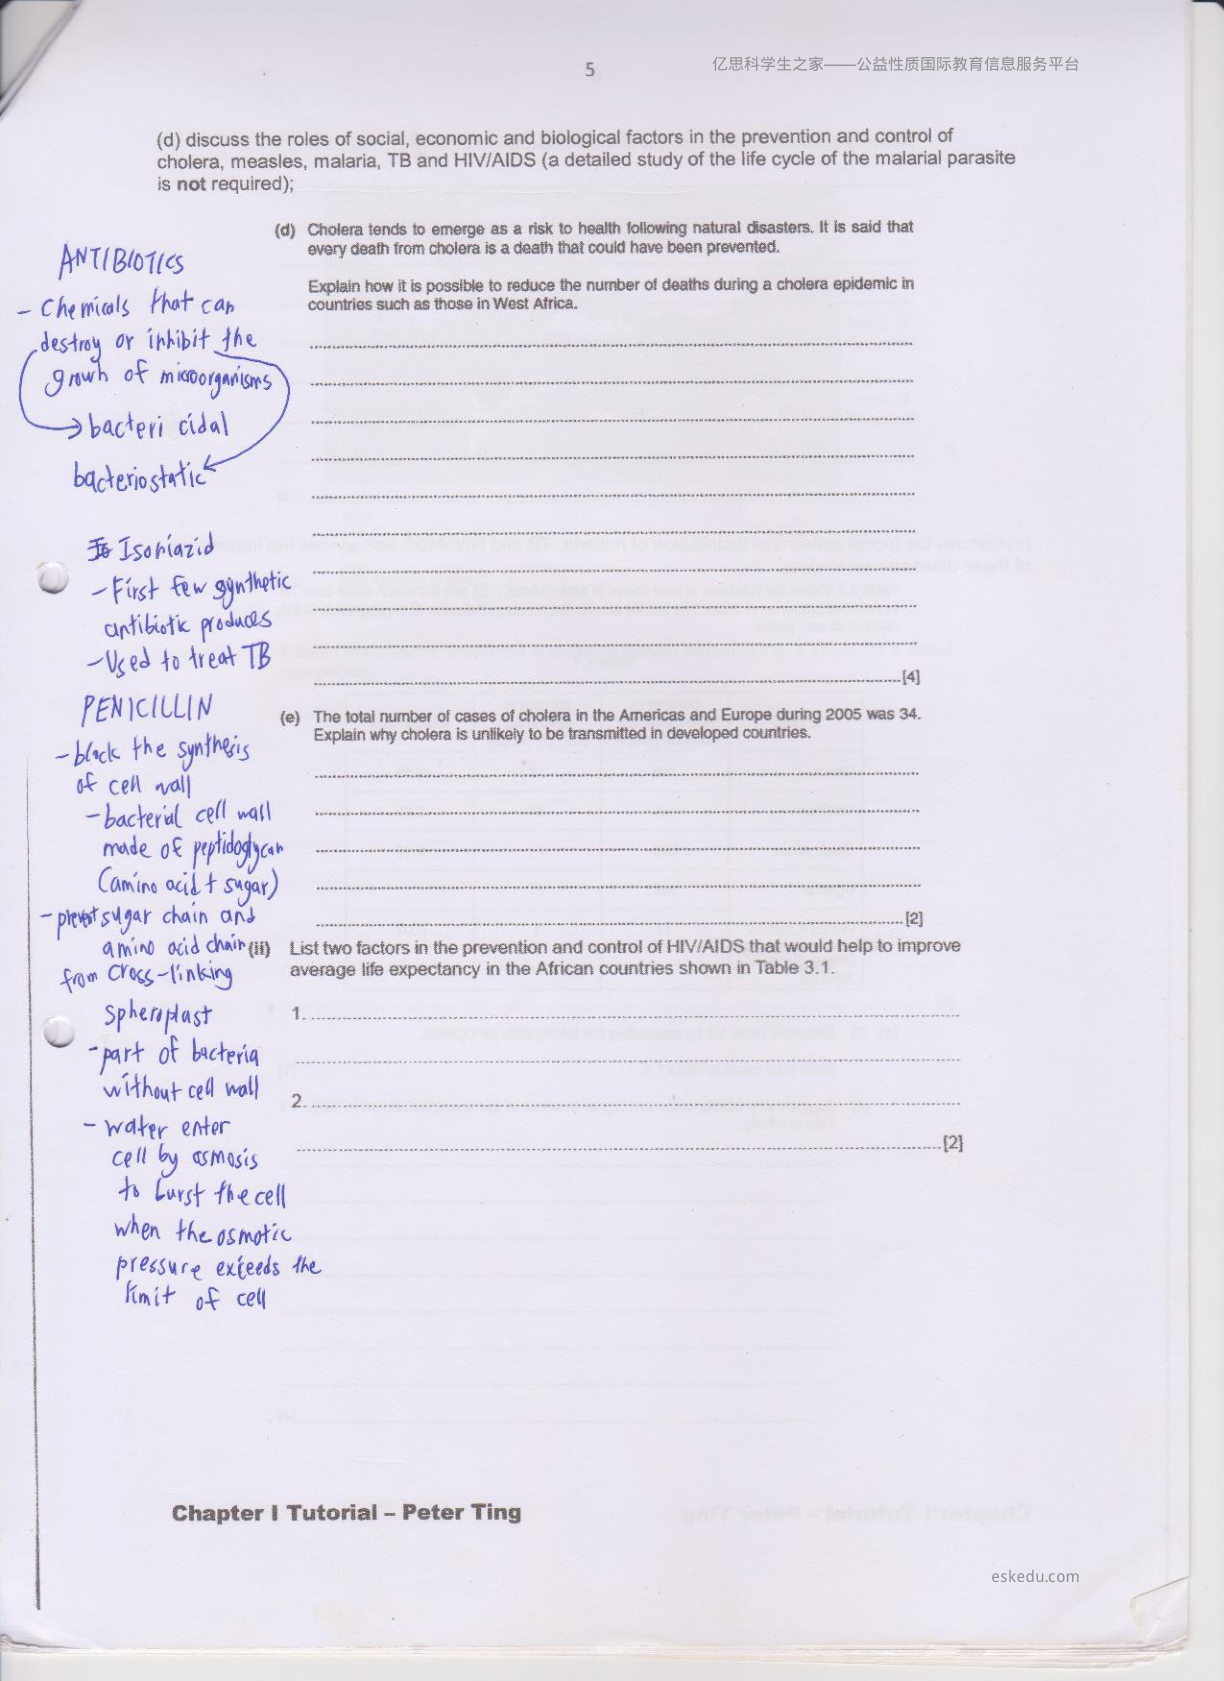 5
亿思科学生之家——公益性质国际教育信息服务平台
(d) discuss the roles of social, economic and biological factors in the prevention and control of
cholera, measles, malaria, TB and HIV/AIDS (a detailed study of the life cycle of the malarial parasite
is not required);
(d) Cholera tends to emerge as a risk to health following natural disasters. It is said that
every death from cholera is a death that could have been prevented.
Explain how it is possible to reduce the number of deaths during a cholera epidemic in
countries such as those in West Africa.
[4]
(e) The total number of cases of cholera in the Americas and Europe during 2005 was 34.
Explain why cholera is unlikely to be transmitted in developed countries.
[2]
(ii) List two factors in the prevention and control of HIV/AIDS that would help to improve
average life expectancy in the African countries shown in Table 3.1.
1.
2.
[2]
ANTIBIOTICS
- Chemicals that can
destroy or inhibit the
growh of microorganisms
→ bacteri cidal
bacteriostatic
Isoniazid
- First few synthetic
antibiotic produces
- Used to treat TB
PENICILLIN
- block the synthesis
of cell wall
- bacterial cell wall
made of peptidoglycan
(amino acid + sugar)
- prevent sugar chain and
amino acid chain
from cross-linking
Spheroplast
- part of bacteria
without cell wall
- water enter
cell by osmosis
to burst the cell
when the osmotic
pressure exceeds the
limit of cell
Chapter I Tutorial – Peter Ting
eskedu.com